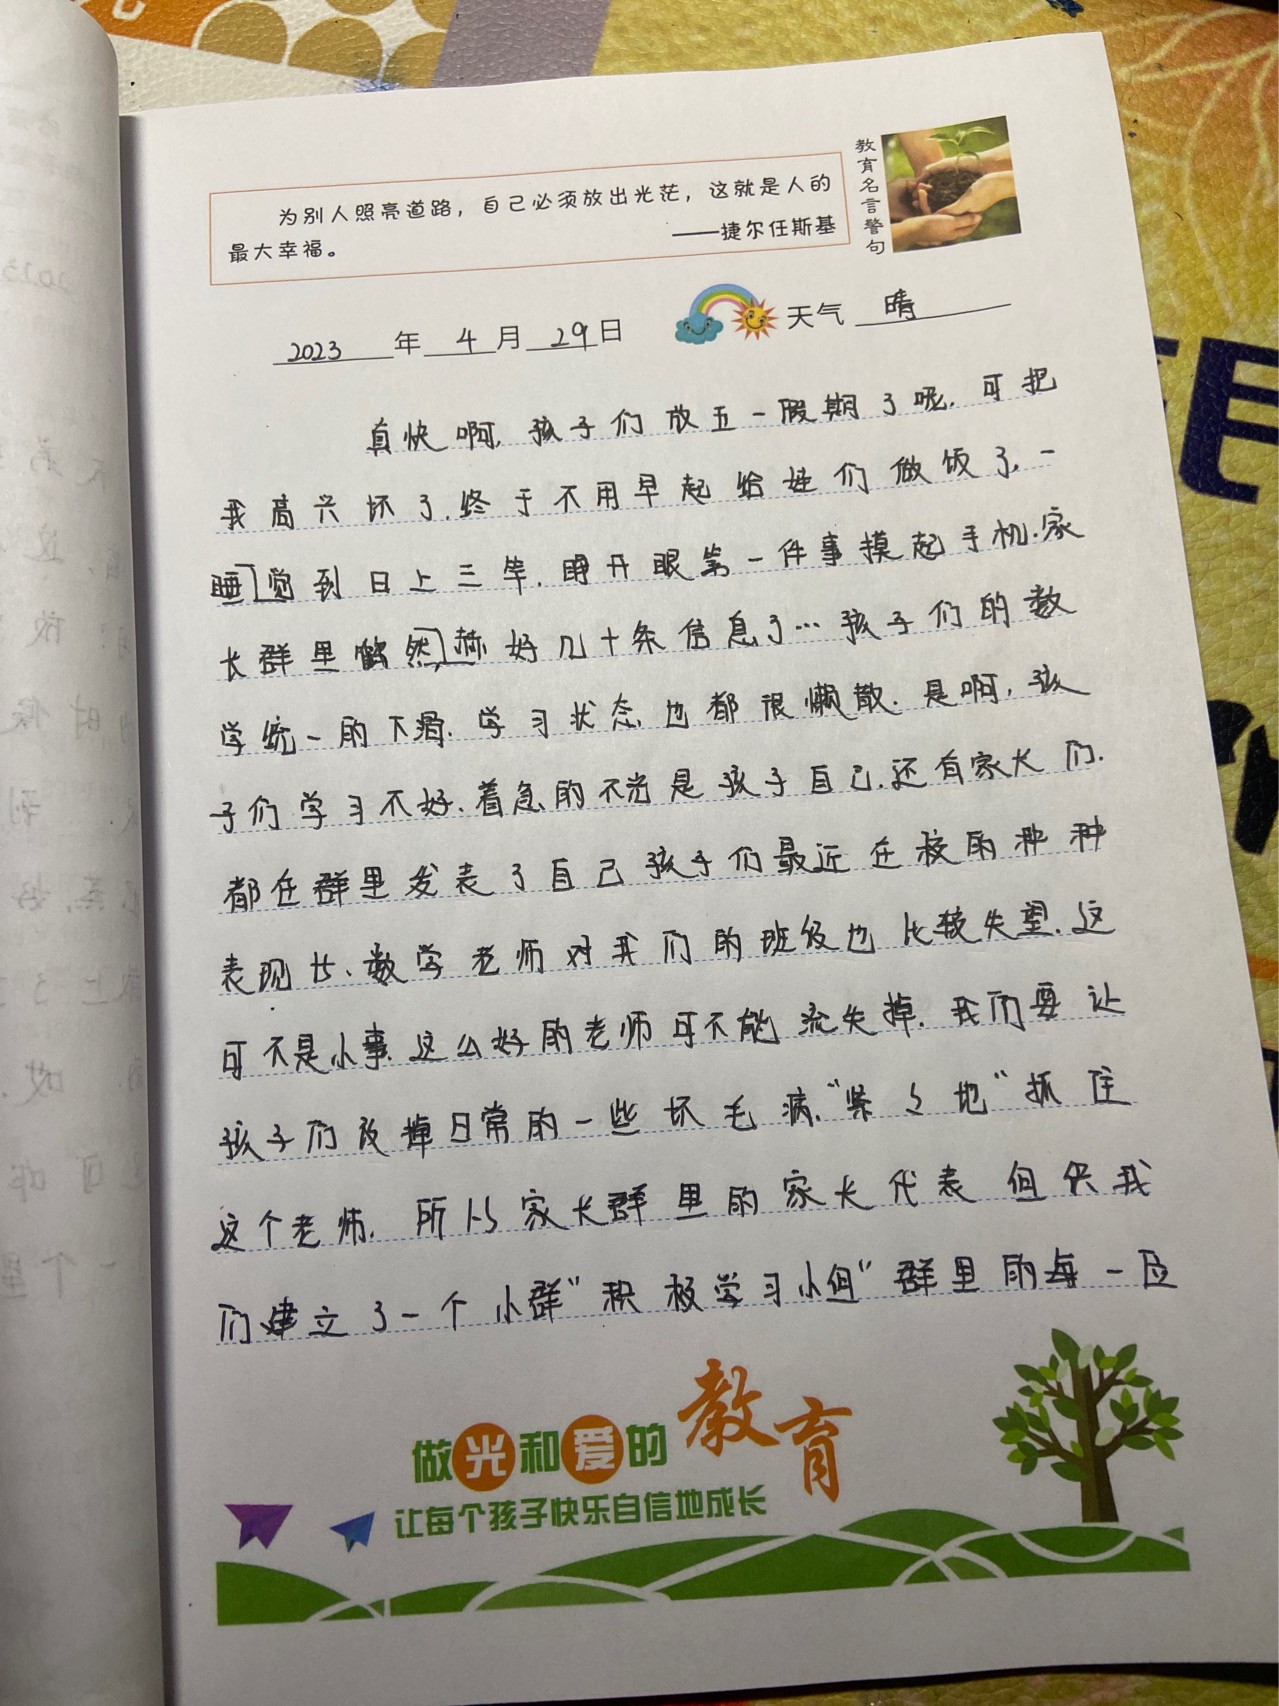 为别人照亮道路，自己必须放出光茫，这就是人的
最大幸福。
——捷尔任斯基
教育名言警句
2023年4月29日
天气 晴
真快啊，孩子们放五一假期了呢，可把
我高兴坏了，终于不用早起给娃们做饭了，一
睡觉到日上三竿，睁开眼第一件事摸起手机，家
长群里 然 好几十条信息了…孩子们的数
学统一的下滑，学习状态也都很懒散，是啊，孩
子们学习不好，着急的不光是孩子自己，还有家长们，
都在群里发表了自己孩子们最近在校的种种
表现 ，数学老师对我们的班级也比较失望，这
可不是小事，这么好的老师可不能流失掉，我们要让
孩子们改掉日常的一些坏毛病，“紧々地”抓住
这个老师，所以家长群里的家长代表 我
们建立了一个小群“积极学习小组”群里的每一位
做光和爱的教育
让每个孩子快乐自信地成长